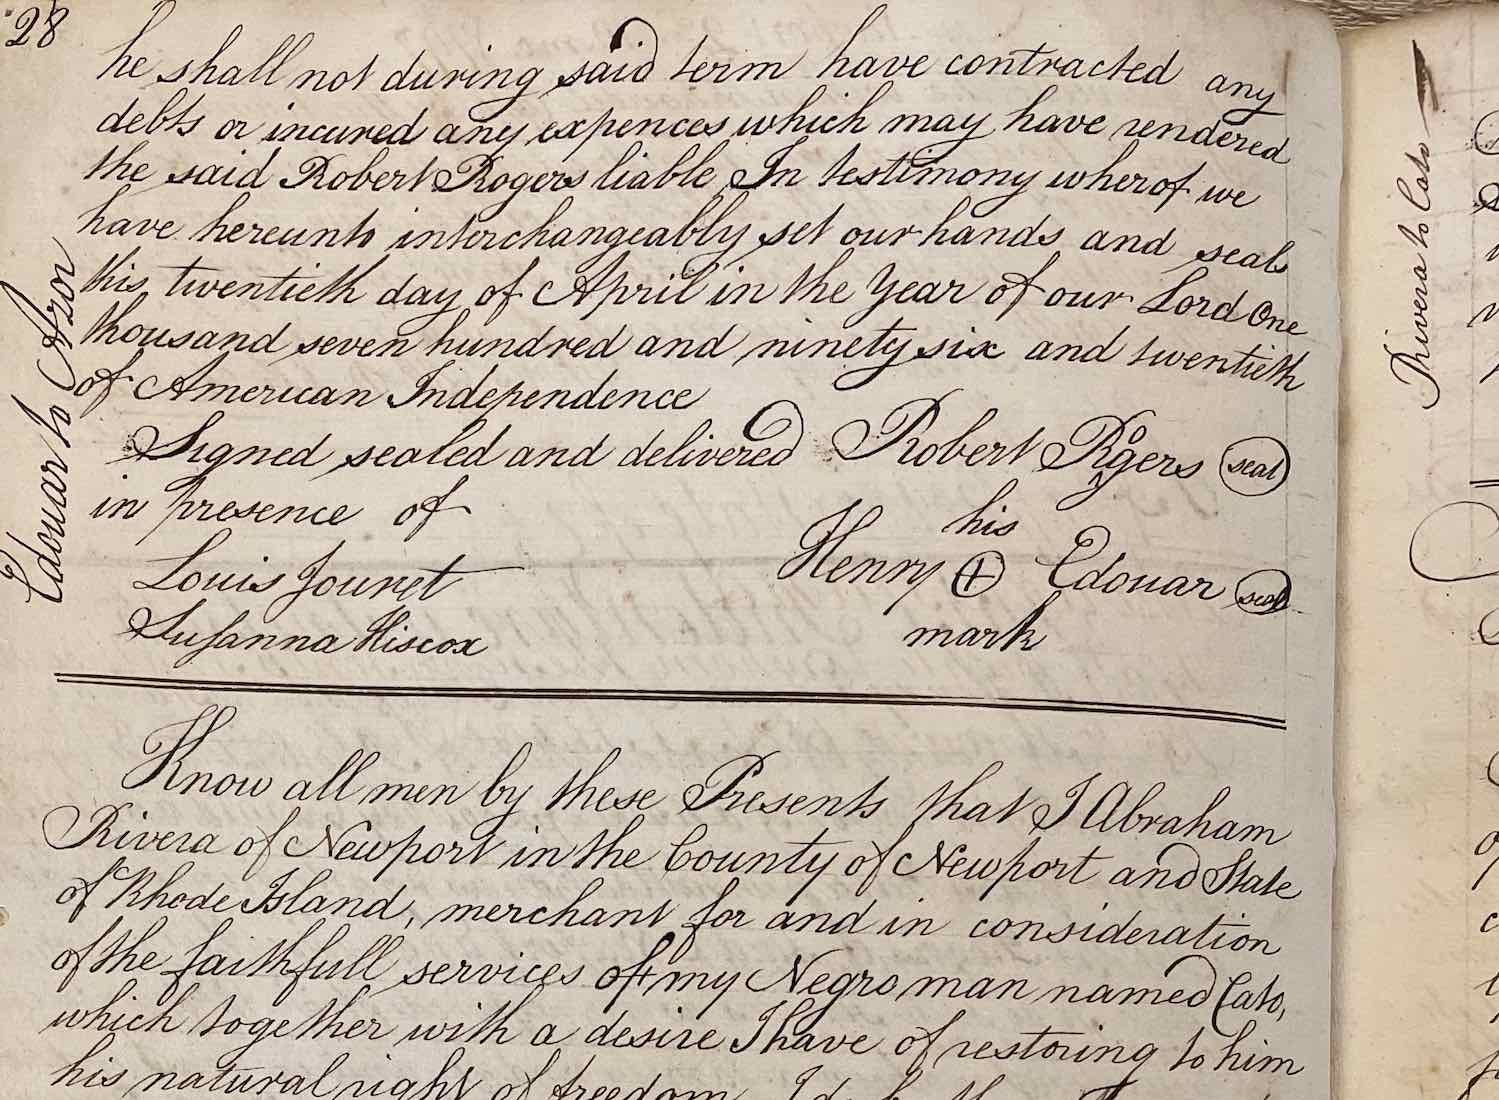 28
he shall not during said term have contracted any
debts or incured any expences which may have rendered
the said Robert Rogers liable In testimony wherof we
have hereunto interchangeably set our hands and seals
this twentieth day of April in the Year of our Lord One
thousand seven hundred and ninety six and twentieth
of American Independence
Signed sealed and delivered Robert Rogers seal
in presence of
his
Louis Jouvet Henry + Edouar seal
Susanna Hiscox mark
Edouar to Azor
Know all men by these Presents that I Abraham
Rivera of Newport in the County of Newport and State
of Rhode Island, merchant for and in consideration
of the faithfull services of my Negro man named Cato,
which together with a desire I have of restoring to him
his natural right of freedom, I do
Rivera to Cato